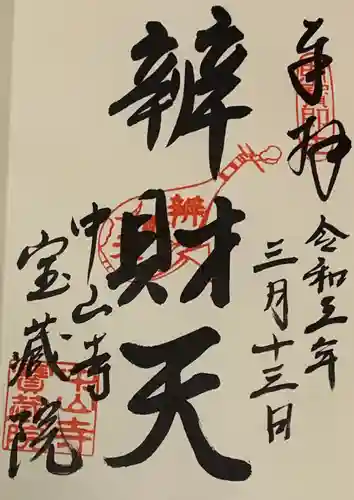 奉拝
令和三年
三月十三日
辨財天
中山寺
宝蔵院